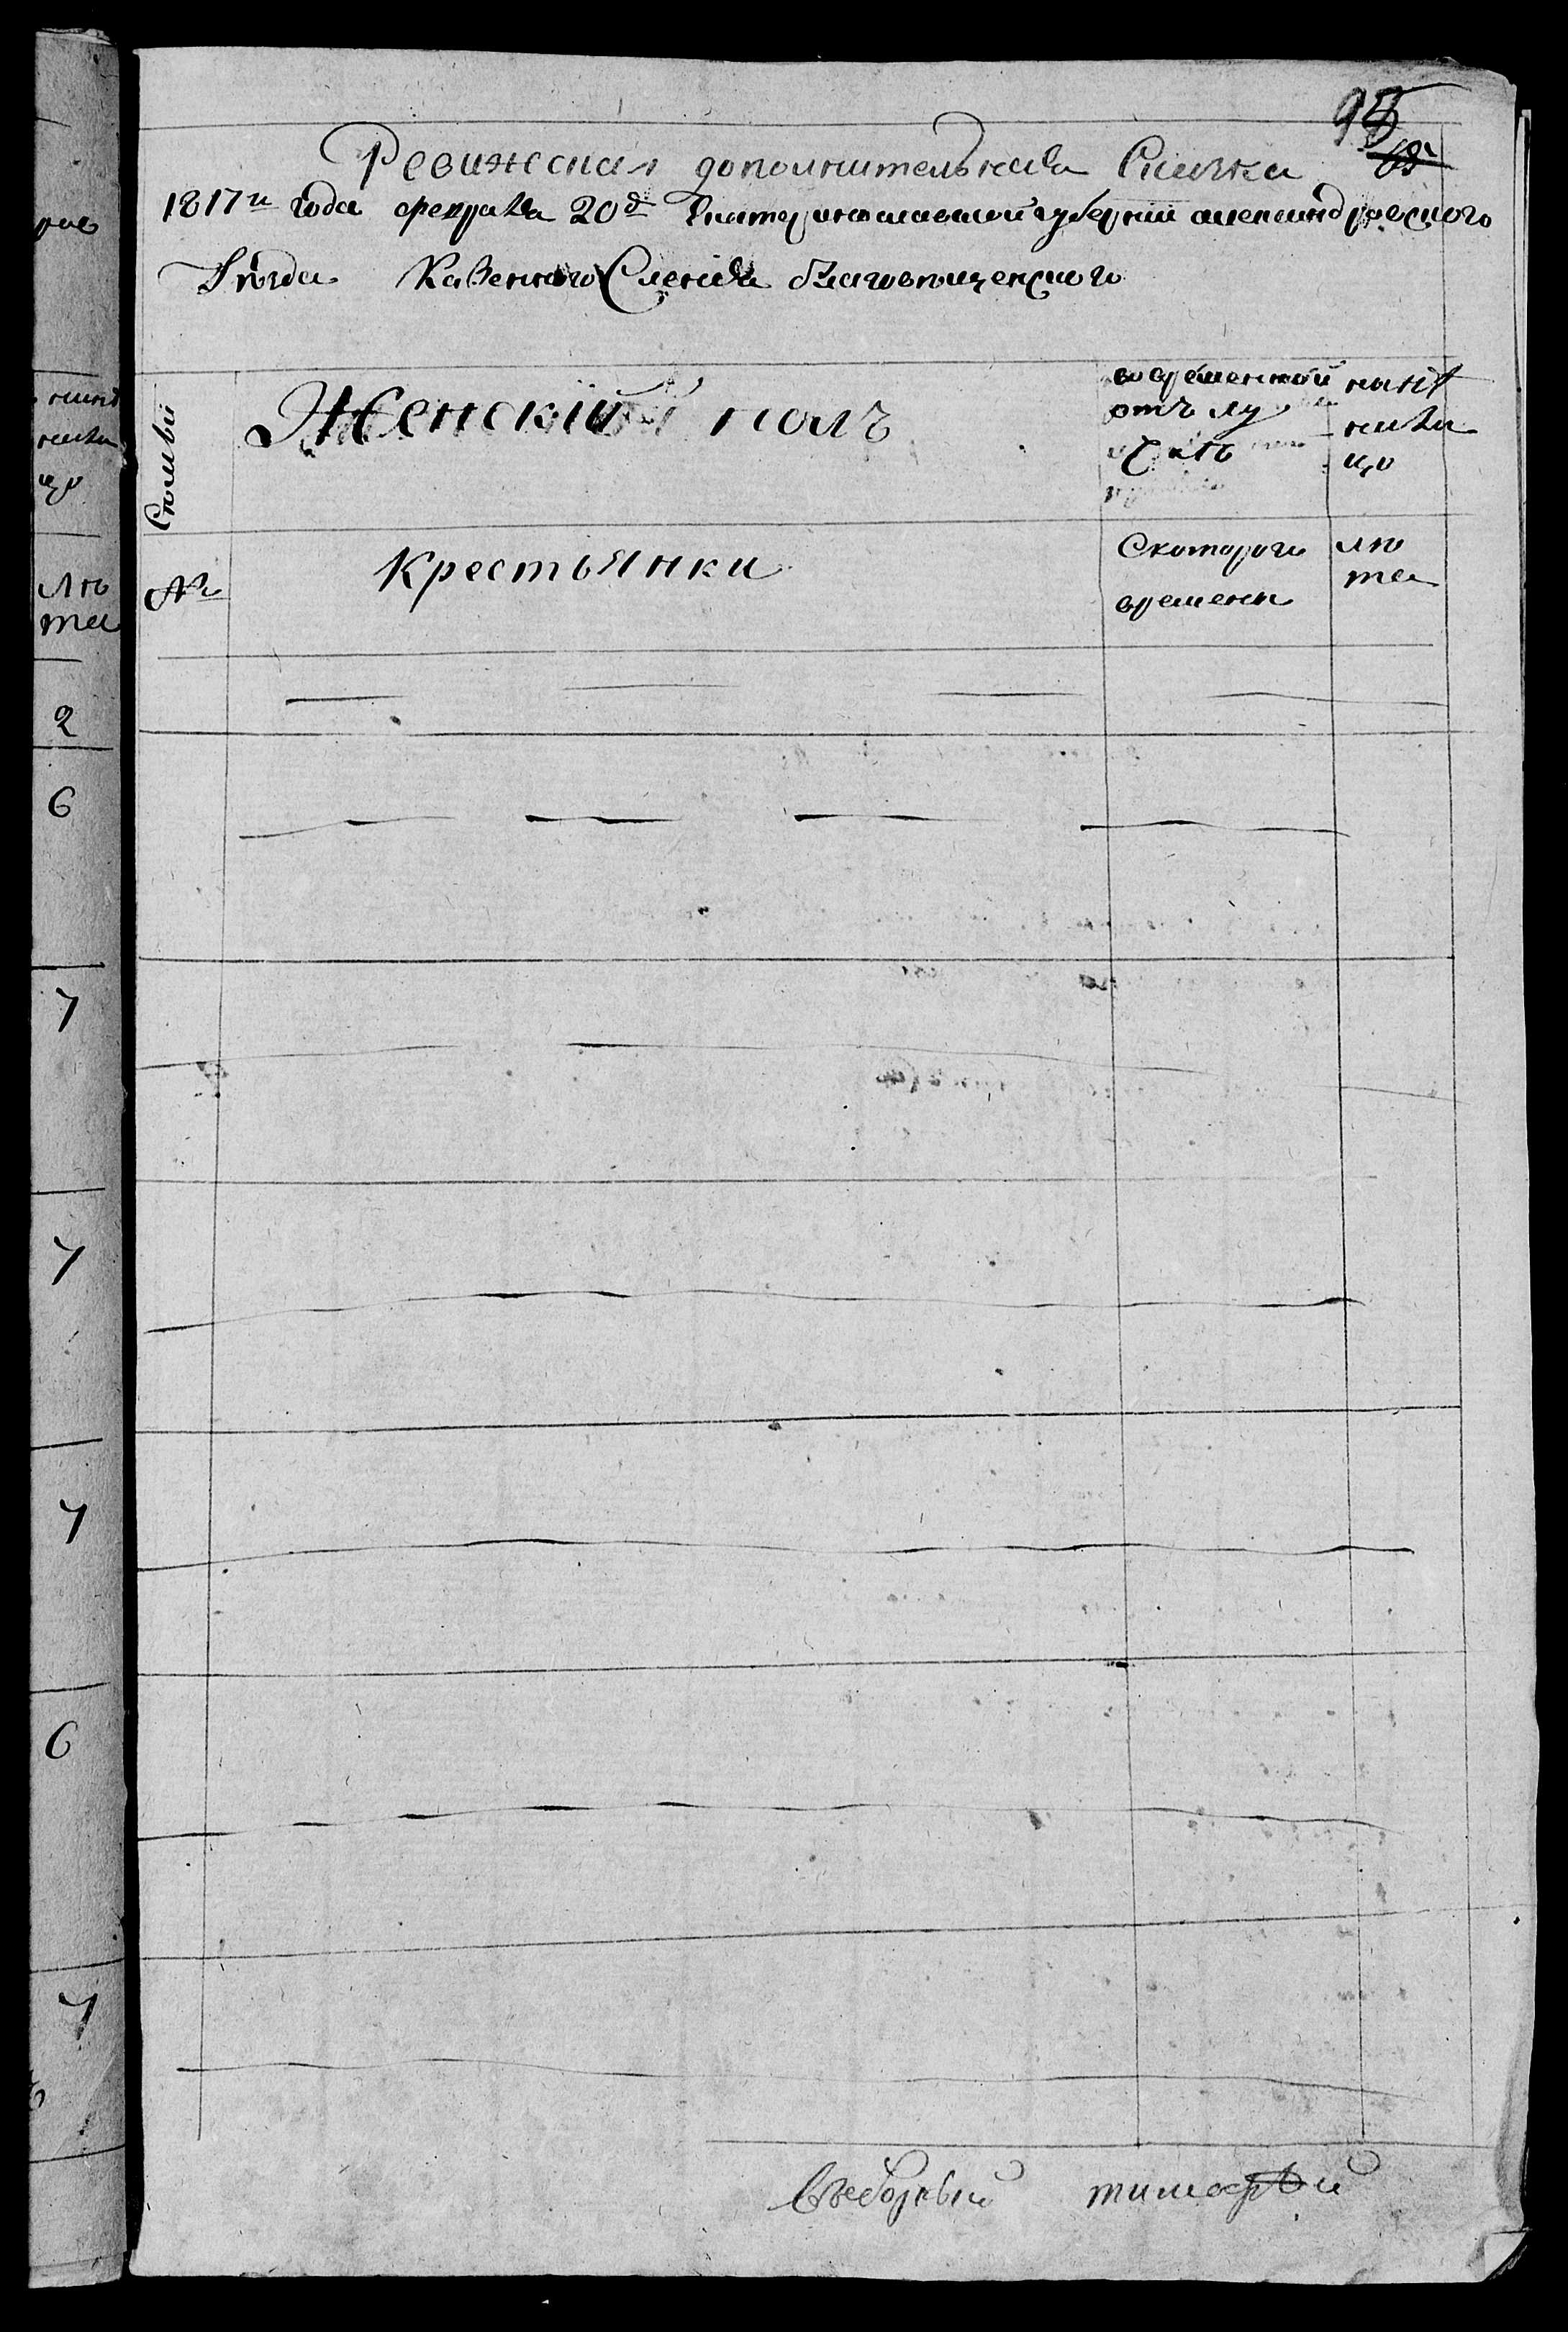 95
Ревижская дополнительная Скаска
1817го года февраля 20д Екатеринославской губернии александровского
Уѣзда Казенного Селенія благовѣщенского
Семьи
Женскій полъ
вовременной
отъ лу
чкѣ
нынѣ
нали
цо
№
Крестьянки
Скоторого
времени
лѣ
та
Выборный тимофѣй
налі
цо
лѣ
та
2
6
7
7
7
6
7